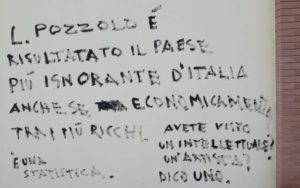 L. POZZOLO É
RISULTATO IL PAESE
PIÚ IGNORANTE D'ITALIA
ANCHE SE ECONOMICAMENTE
TRA I PIÚ RICCHI
È UNA
STATISTICA.
AVETE VISTO
UN INTELLETTUALE?
UN'ARTISTA?
DICO UNO.